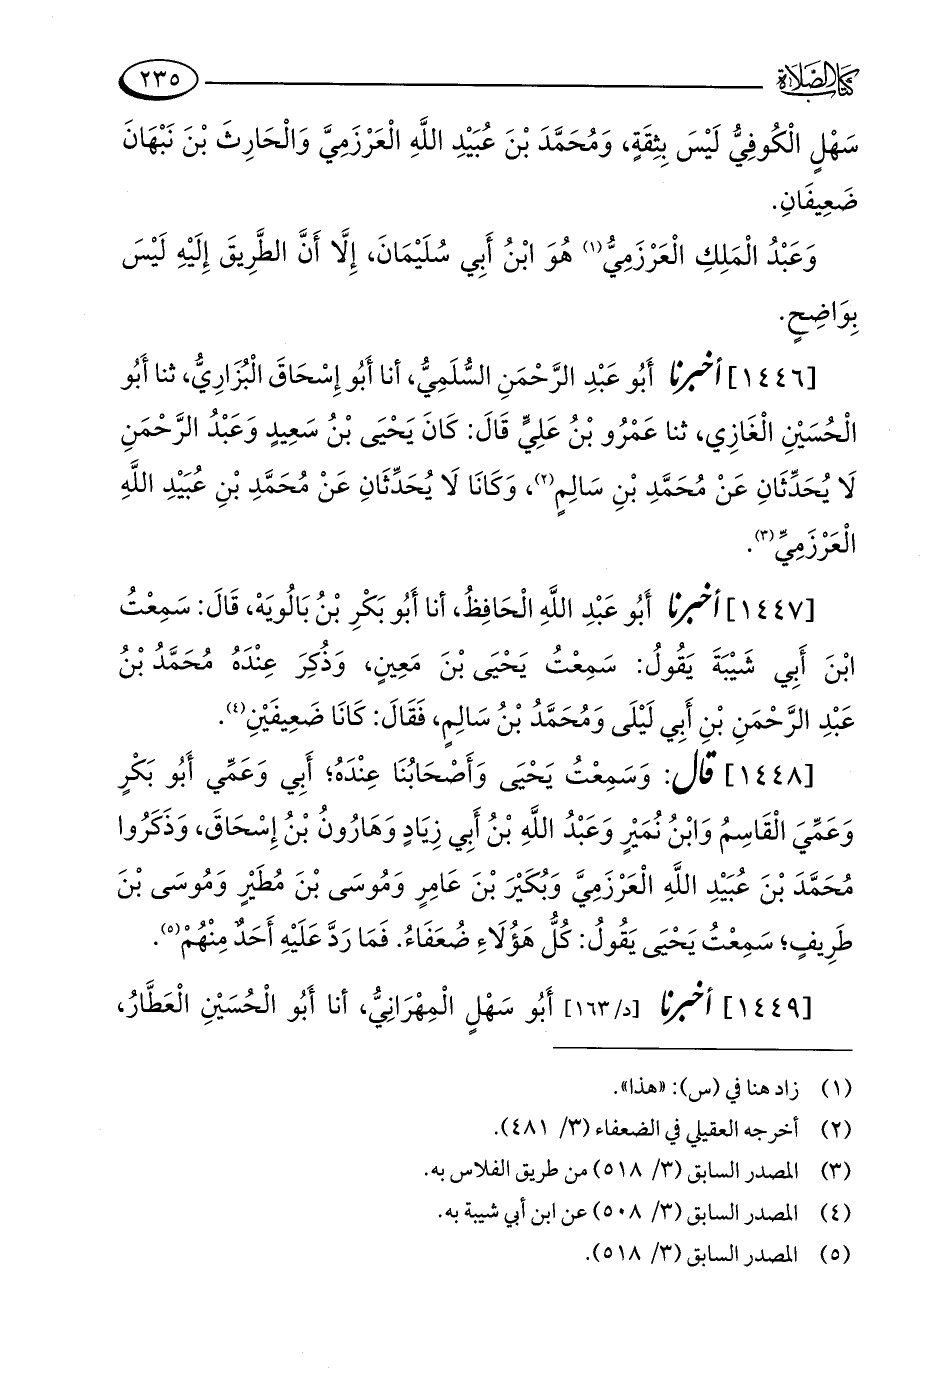 كتاب الصلاة ٢٣٥
سَهْلٍ الْكُوفِيُّ لَيْسَ بِثِقَةٍ، وَمُحَمَّدَ بْنَ عُبَيْدِ اللَّهِ الْعَرْزَمِيَّ وَالْحَارِثَ بْنَ نَبْهَانَ
ضَعِيفَانِ.
وَعَبْدُ الْمَلِكِ الْعَرْزَمِيُّ(١) هُوَ ابْنُ أَبِي سُلَيْمَانَ، إِلَّا أَنَّ الطَّرِيقَ إِلَيْهِ لَيْسَ
بِوَاضِحٍ.
[١٤٤٦] أخبرنا أَبُو عَبْدِ الرَّحْمَنِ السُّلَمِيُّ، أنا أَبُو إِسْحَاقَ الْبُزَارِيُّ، ثنا أَبُو
الْحُسَيْنِ الْغَازِي، ثنا عَمْرُو بْنُ عَلِيٍّ قَالَ: كَانَ يَحْيَى بْنُ سَعِيدٍ وَعَبْدُ الرَّحْمَنِ
لَا يُحَدِّثَانِ عَنْ مُحَمَّدِ بْنِ سَالِمٍ(٢)، وَكَانَا لَا يُحَدِّثَانِ عَنْ مُحَمَّدِ بْنِ عُبَيْدِ اللَّهِ
الْعَرْزَمِيِّ(٣).
[١٤٤٧] أخبرنا أَبُو عَبْدِ اللَّهِ الْحَافِظُ، أنا أَبُو بَكْرِ بْنُ بَالُويَهْ، قَالَ: سَمِعْتُ
ابْنَ أَبِي شَيْبَةَ يَقُولُ: سَمِعْتُ يَحْيَى بْنَ مَعِينٍ، وَذُكِرَ عِنْدَهُ مُحَمَّدُ بْنُ
عَبْدِ الرَّحْمَنِ بْنِ أَبِي لَيْلَى وَمُحَمَّدُ بْنُ سَالِمٍ، فَقَالَ: كَانَا ضَعِيفَيْنِ(٤).
[١٤٤٨] قال: وَسَمِعْتُ يَحْيَى وَأَصْحَابُنَا عِنْدَهُ؛ أَبِي وَعَمِّي أَبُو بَكْرٍ
وَعَمِّيَ الْقَاسِمُ وَابْنُ نُمَيْرٍ وَعَبْدُ اللَّهِ بْنُ أَبِي زِيَادٍ وَهَارُونُ بْنُ إِسْحَاقَ، وَذَكَرُوا
مُحَمَّدَ بْنَ عُبَيْدِ اللَّهِ الْعَرْزَمِيَّ وَبُكَيْرَ بْنَ عَامِرٍ وَمُوسَى بْنَ مُطَيْرٍ وَمُوسَى بْنَ
طَرِيفٍ؛ سَمِعْتُ يَحْيَى يَقُولُ: كُلُّ هَؤُلَاءِ ضُعَفَاءُ. فَمَا رَدَّ عَلَيْهِ أَحَدٌ مِنْهُمْ(٥).
[١٤٤٩] أخبرنا [د/١٦٣] أَبُو سَهْلٍ الْمِهْرَانِيُّ، أنا أَبُو الْحُسَيْنِ الْعَطَّارُ،
(١) زاد هنا في (س): «هذا».
(٢) أخرجه العقيلي في الضعفاء (٣/ ٤٨١).
(٣) المصدر السابق (٣/ ٥١٨) من طريق الفلاس به.
(٤) المصدر السابق (٣/ ٥٠٨) عن ابن أبي شيبة به.
(٥) المصدر السابق (٣/ ٥١٨).